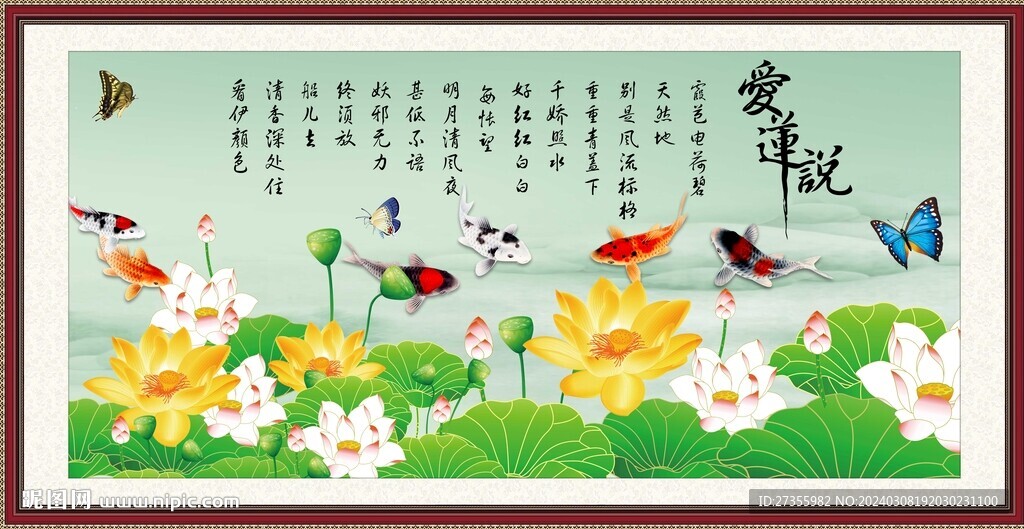 愛蓮說
霞苞电荷碧
天然地
别是风流标格
重重青盖下
千娇照水
好红红白白
每怅望
明月清风夜
甚低不语
妖邪无力
终须放
船儿去
清香深处住
看伊颜色
昵图网 www.nipic.com
ID:27355982 NO:20240308192030231100